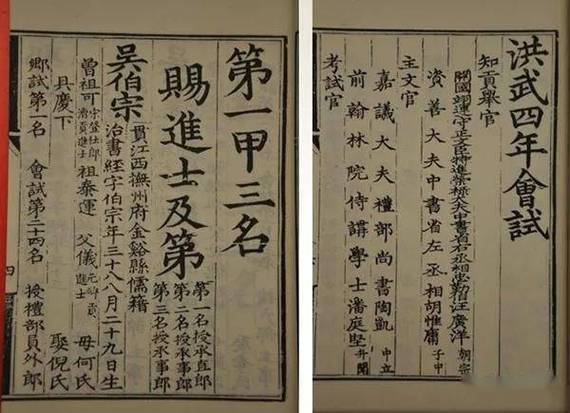 洪武四年會試
知貢舉官
開國翊運守正文臣特進榮祿大夫中書省右丞相忠勤伯汪廣洋 朝宗
資善大夫中書省左丞相胡惟庸 子中
主文官
嘉議大夫禮部尚書陶凱 中立
前翰林院侍講學士潘庭堅
考試官
第一甲三名
賜進士及第
第一名授承直郎
第二名授承事郎
第三名授承事郎
吳伯宗
貫江西撫州府金谿縣儒籍
治書經字伯宗年三十八月二十九日生
曾祖可 宋登仕郎漕貢進士 祖泰運 父儀 元鄉貢進士 母何氏
具慶下 娶倪氏
鄉試第一名 會試第二十四名 授禮部員外郎
四